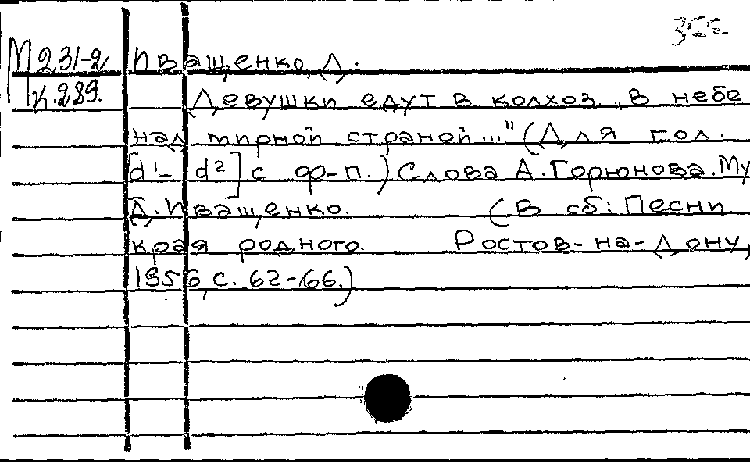 М 231-2 Иващенко, Д.
к.289. Девушки едут в колхоз „В небе
над мирной страной..." (Для гол.
[d¹- d²] с ф-п.) Слова А. Горюнова. Му
Д. Иващенко. (В сб: Песни
края родного. Ростов-на-Дону,
1956, с. 62-66.)